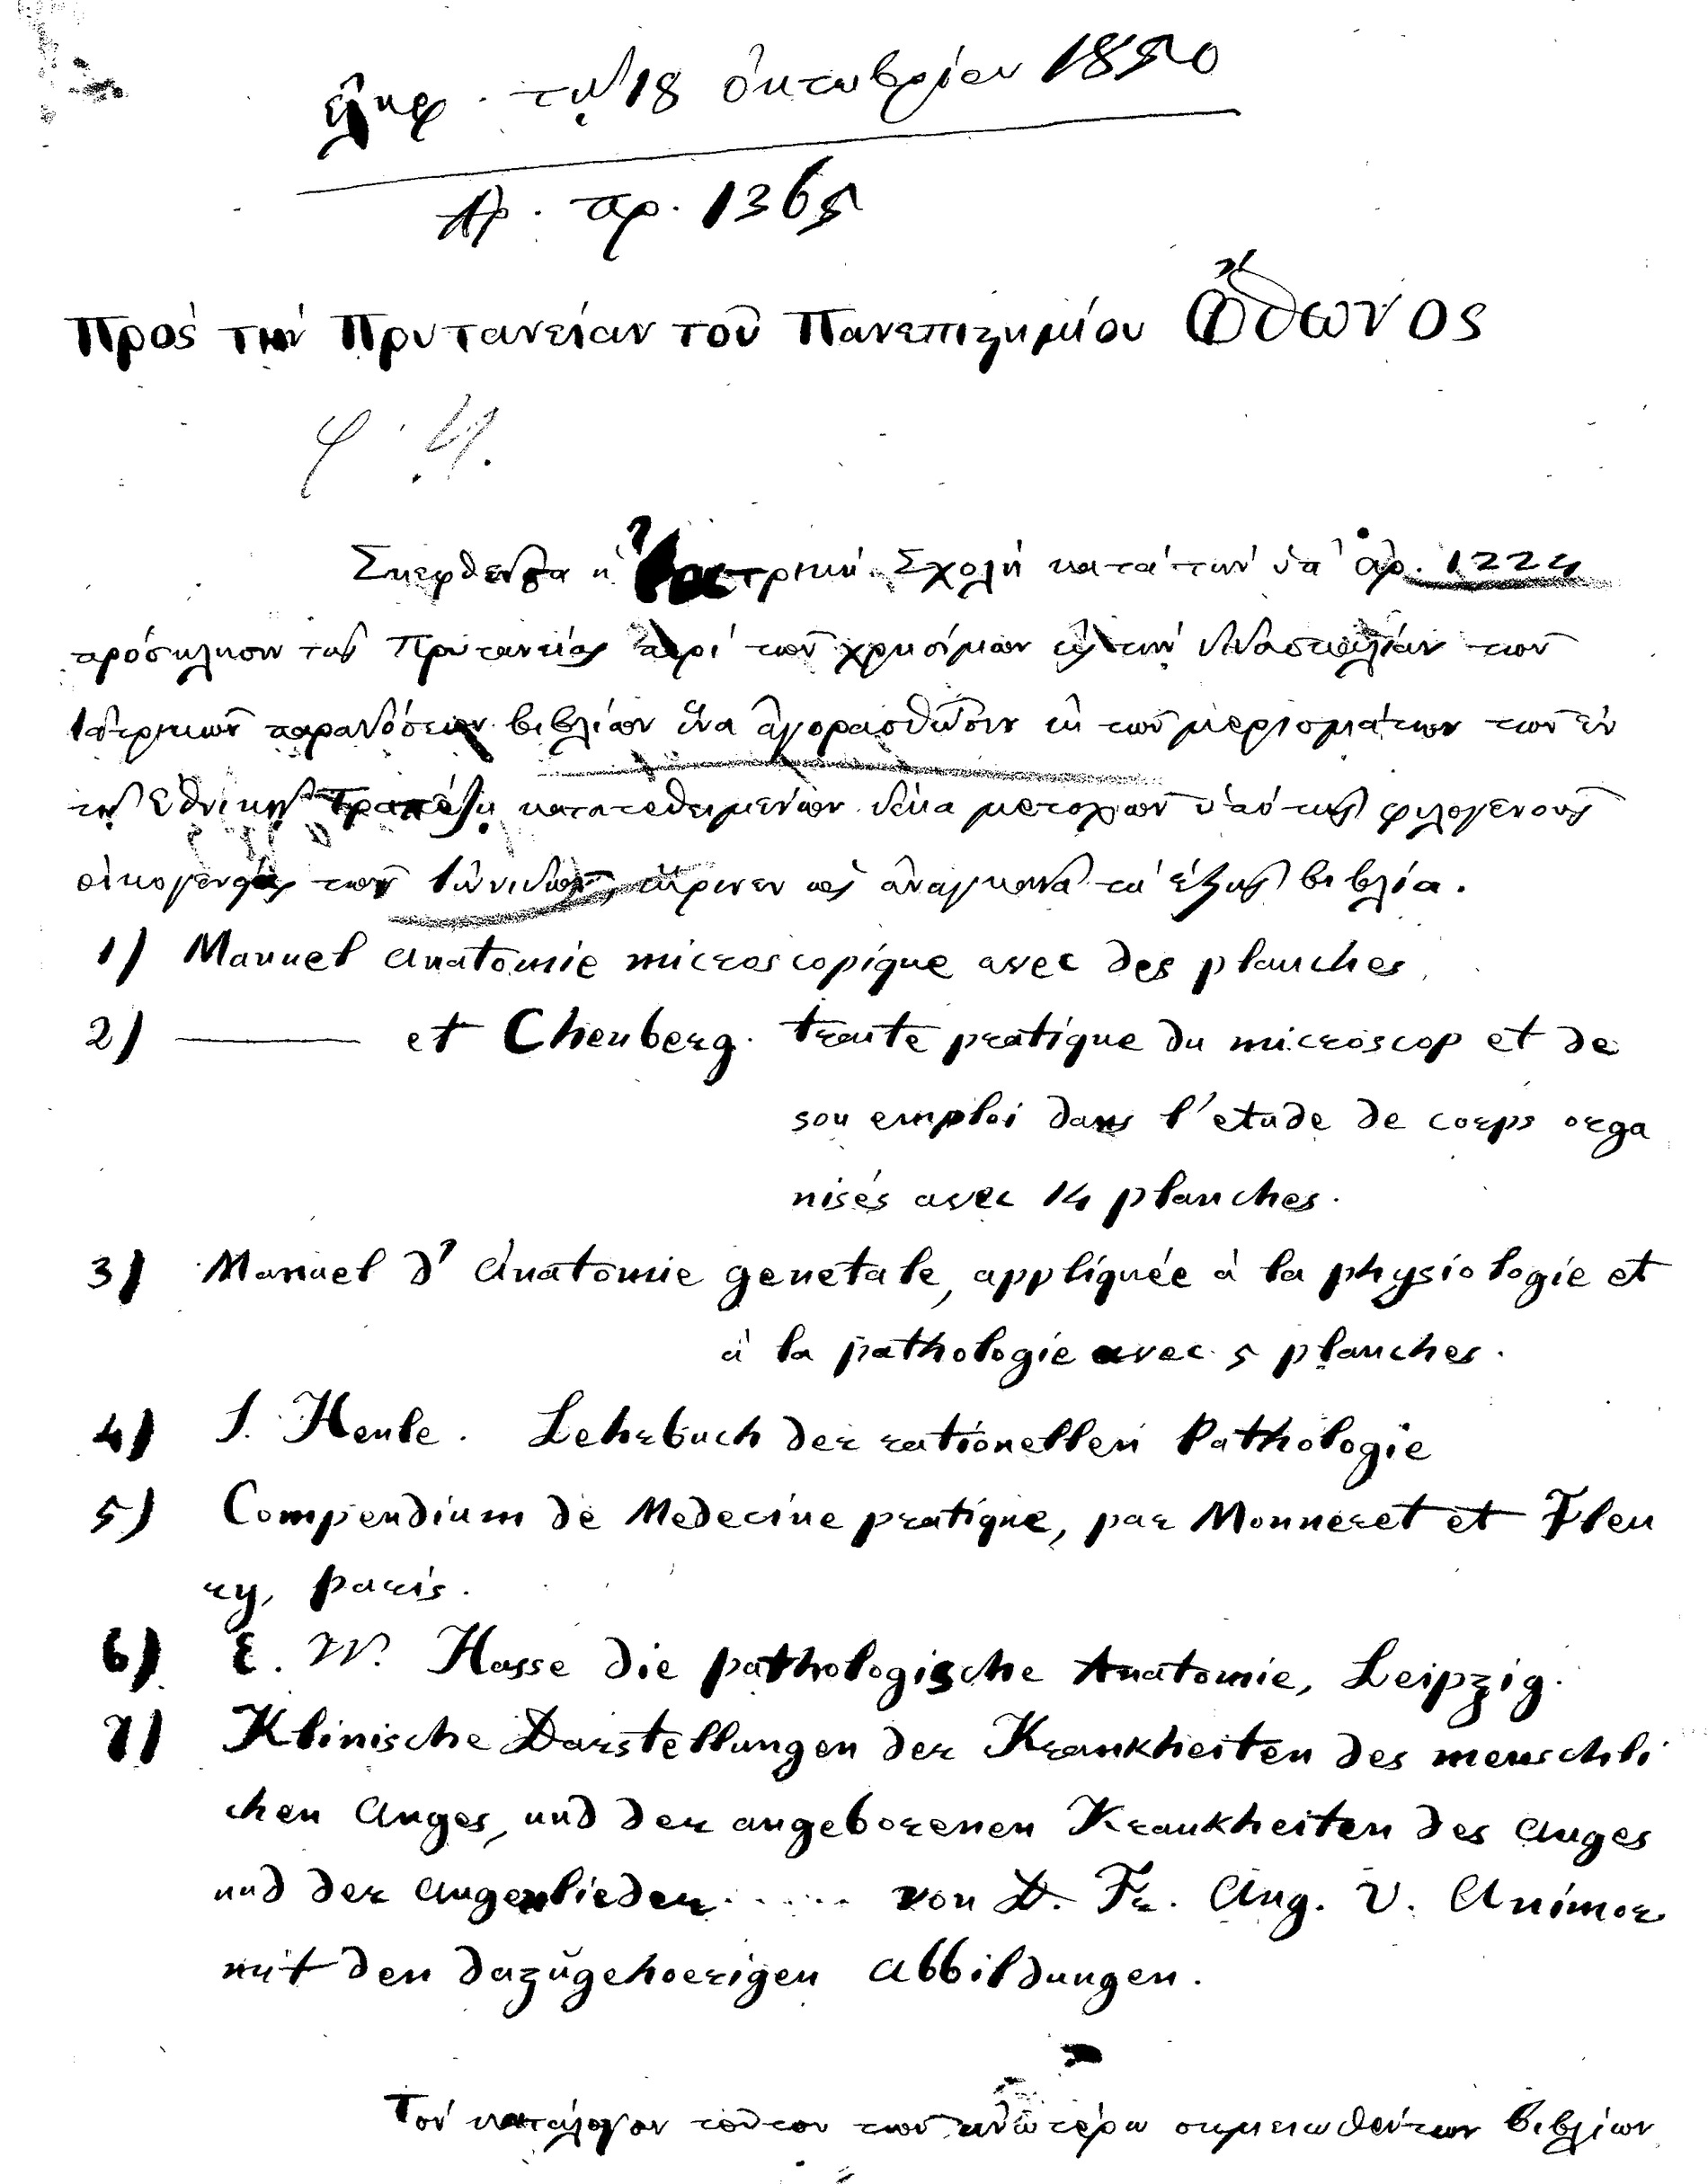 τῇ 18 ὀκτωβρίου 1850
Ἀρ. πρ. 1365
Πρὸς τὴν Πρυτανείαν τοῦ Πανεπιςημίου Ὄθωνος
φ. 4.
Σκεφθεῖσα ἡ Ἰατρικὴ Σχολὴ κατὰ τὴν ὑπ' ἀρ. 1224
πρόσκλησιν τῆς Πρυτανείας περὶ τῶν χρησίμων εἰς τὴν διδασκαλίαν τῶν
Ἰατρικῶν παραδόσεων βιβλίων ἵνα ἀγορασθῶσιν ἐκ τῶν μερισμάτων τῶν ἐν
τῇ Ἐθνικῇ Τραπέζῃ κατατεθειμένων δέκα μετοχῶν ὑπὸ τῆς φιλογενοῦς
οἰκογενείας τῶν ἔκρινεν ὡς ἀναγκαῖα τὰ ἑξῆς βιβλία.
1) Manuel anatomie microscopique avec des planches
2) ——— et Chenberg. traite pratique du microscop et de
son emploi dans l'etude de corps orga
nisés avec 14 planches.
3) Manuel d'anatomie genetale, appliquée à la physiologie et
à la pathologie avec 5 planches.
4) J. Henle. Lehrbuch der rationellen Pathologie
5) Compendium de Medecine pratique, par Monneret et Fleu
ry, paris.
6) E. W. Hasse die pathologische Anatomie, Leipzig.
7) Klinische Darstellungen der Krankheiten des menschli
chen Auges, und der angeborenen Krankheiten des Auges
und der Augenlieder ..... von D. Fr. Aug. v. Animor
mit den dazŭgehoerigen Abbildungen.
Τὸν κατάλογον τοῦτον τῶν ἀνωτέρω σημειωθέντων βιβλίων